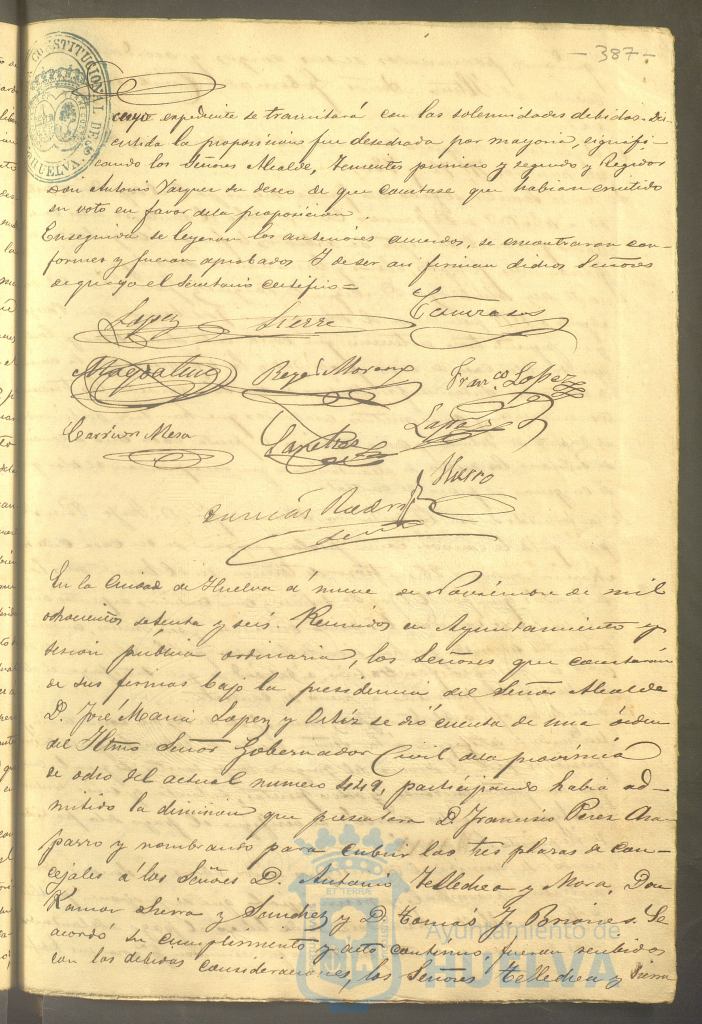 - 387 -
CONSTITUCIONAL DE
HUELVA
cuyo expediente se tramitará con las solemnidades debidas. Dis-
cutida la proposicion fue desechada por mayoria, signifi-
cando los Señores Alcalde, Tenientes primero y segundo y Regidor
Don Antonio Vazquez su deseo de que constase que habian emitido
su voto en favor dela proposicion.
Enseguida se leyeron los anteriores acuerdos, se encontraron con-
formes y fueron aprobados Y de ser asi firman dichos Señores
de que yo el Secretario certifico =
Lopez Sierra
Magdalena Moreno Franco Lopez
Carrion Mesa
Hierro
En la Ciudad de Huelva á nueve de Noviembre de mil
ochocientos setenta y seis. Reunidos en Ayuntamiento y
sesion pública ordinaria, los Señores que constarán
de sus firmas bajo la presidencia del Señor Alcalde
D. José Maria Lopez y Ortiz se dió cuenta de una órden
del Iltmo Señor Gobernador Civil dela provincia
de ocho del actual numero 449, participando habia ad-
mitido la dimision que presentara D. Francisco Perez
y nombrando para cubrir las tres plazas de con-
cejales á los Señores D. Antonio Tellechea y Mora, Don
Ramon Sierra y Sanchez y D. Tomás J. Briones. Se
acordó su cumplimiento y acto contínuo fueron recibidos
con las debidas consideraciones, los Señores Tellechea y Sierra
Ayuntamiento de
HUELVA